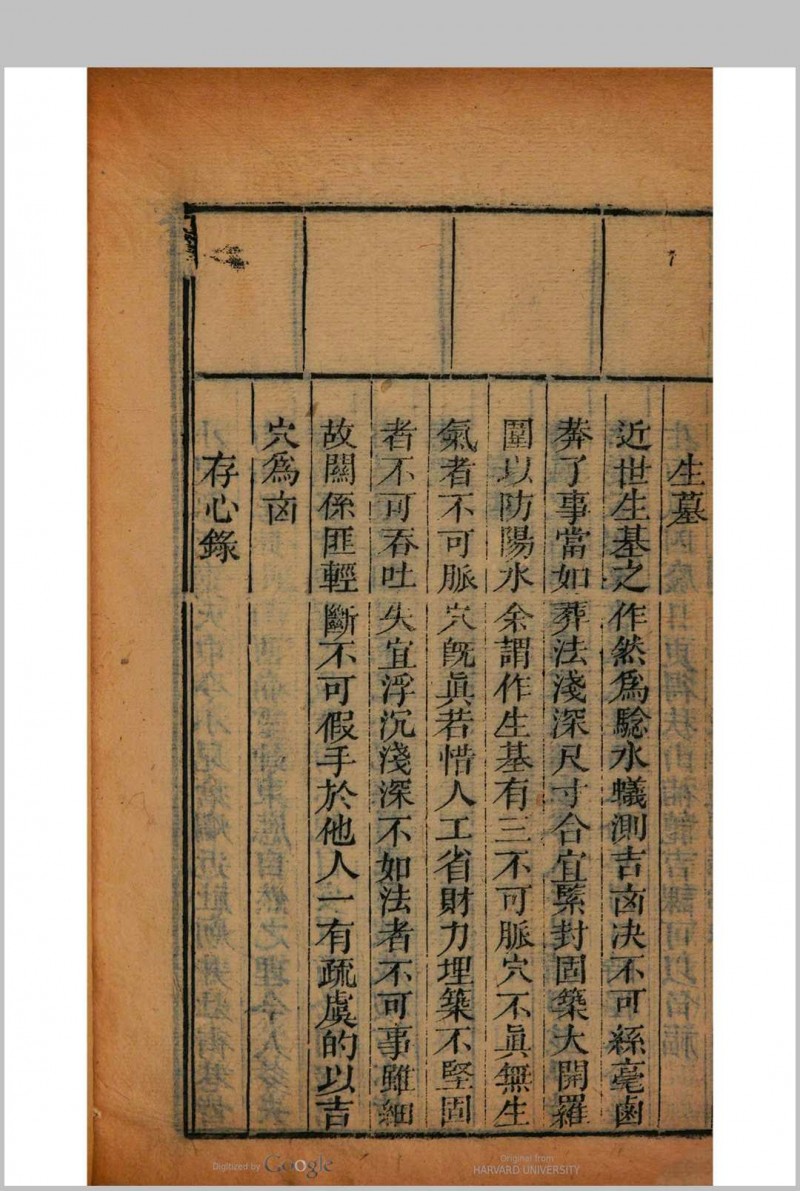 生墓
近世生基之作然爲騐水蟻測吉卤决不可絲毫鹵
莽了事當如葬法淺深尺寸合宜緊封固築大開羅
圍以防陽水余謂作生基有三不可脈穴不眞無生
氣者不可脈穴旣眞若惜人工省財力埋築不堅固
者不可吞吐失宜浮沉淺深不如法者不可事雖細
故關係匪輕斷不可假手於他人一有疏虞的以吉
穴爲卤
存心錄
Digitized by Google
Original from
HARVARD UNIVERSITY